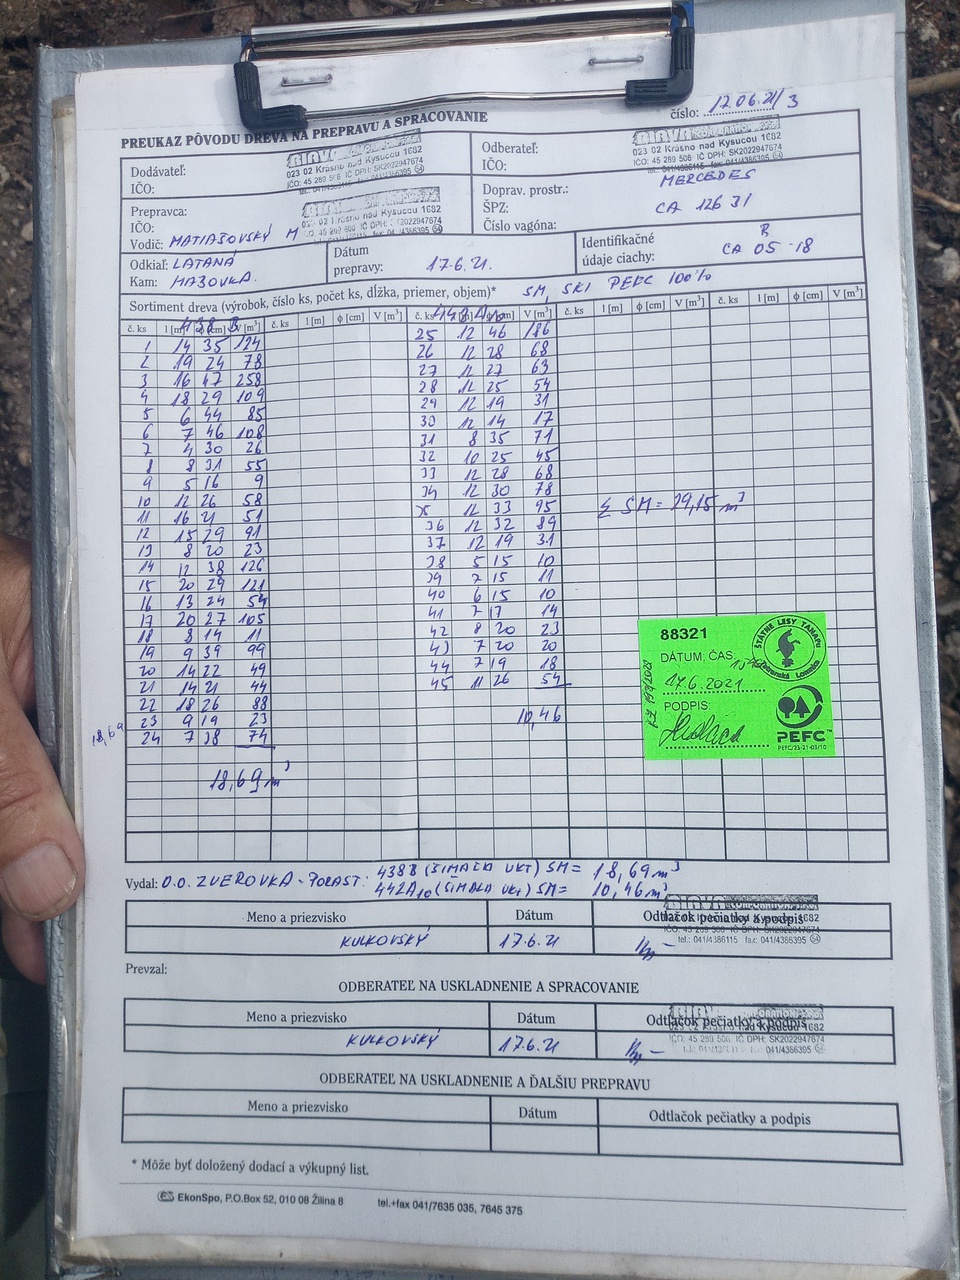 PREUKAZ PÔVODU DREVA NA PREPRAVU A SPRACOVANIE
číslo: 17.06.21/3
Dodávateľ:
IČO:
023 02 Krásno nad Kysucou 1682
IČO: 45 289 506 IČ DPH: SK2022947674
Odberateľ:
IČO:
023 02 Krásno nad Kysucou 1682
IČO: 45 289 506 IČ DPH: SK2022947674
Prepravca:
IČO:
Vodič: MATIAŠOVSKÝ M
Doprav. prostr.: MERCEDES
ŠPZ: CA 126 31
Číslo vagóna:
Odkiaľ: LATANÁ
Kam: MAZOVKA.
Dátum
prepravy: 17.6.21.
Identifikačné
údaje ciachy: R
CA 05-18
Sortiment dreva (výrobok, číslo ks, počet ks, dĺžka, priemer, objem)* SM, SKI PEFC 100%
č. ks l [m] ϕ [cm] V [m³] č. ks l [m] ϕ [cm] V [m³] č. ks l [m] ϕ [cm] V [m³] č. ks l [m] ϕ [cm] V [m³] č. ks l [m] ϕ [cm] V [m³]
1 14 35 124
2 19 24 78
3 16 47 258
4 18 29 109
5 6 44 85
6 7 46 108
7 4 30 26
8 8 31 55
9 5 16 9
10 12 26 58
11 16 21 51
12 15 29 91
13 8 20 23
14 12 38 126
15 20 29 121
16 13 24 54
17 20 27 105
18 8 14 11
19 9 39 99
20 14 22 49
21 14 21 44
22 18 26 88
23 9 19 23
24 7 38 74
18,69
18,69 m³
25 12 46 186
26 12 28 68
27 12 27 63
28 12 25 54
29 12 19 31
30 12 14 17
31 8 35 71
32 10 25 45
33 12 28 68
34 12 30 78
35 12 33 95
36 12 32 89
37 12 19 31
38 5 15 10
39 7 15 11
40 6 15 10
41 7 17 14
42 8 20 23
43 7 20 20
44 7 19 18
45 11 26 54
10,46
Σ SM = 29,15 m³
88321
DÁTUM, ČAS.
17.6.2021
PODPIS:
ŠTÁTNE LESY TANAPU
Tatranská Lomnica
PEFC™
PEFC/23-21-03/10
Vydal: O.O. ZVEROVKA - PORAST: 438B (ŠIMALA UKT) SM = 18,69 m³
442A10 (ŠIMALA UKT) SM = 10,46 m³
Meno a priezvisko Dátum Odtlačok pečiatky a podpis
KULKOVSKÝ 17.6.21
023 02 Krásno nad Kysucou 1682
IČO: 45 289 506 IČ DPH: SK2022947674
tel.: 041/4386115 fax: 041/4386395
Prevzal:
ODBERATEĽ NA USKLADNENIE A SPRACOVANIE
Meno a priezvisko Dátum Odtlačok pečiatky a podpis
KULKOVSKÝ 17.6.21
023 02 Krásno nad Kysucou 1682
IČO: 45 289 506 IČ DPH: SK2022947674
ODBERATEĽ NA USKLADNENIE A ĎALŠIU PREPRAVU
Meno a priezvisko Dátum Odtlačok pečiatky a podpis
* Môže byť doložený dodací a výkupný list.
EkonSpo, P.O.Box 52, 010 08 Žilina 8 tel.+fax 041/7635 035, 7645 375